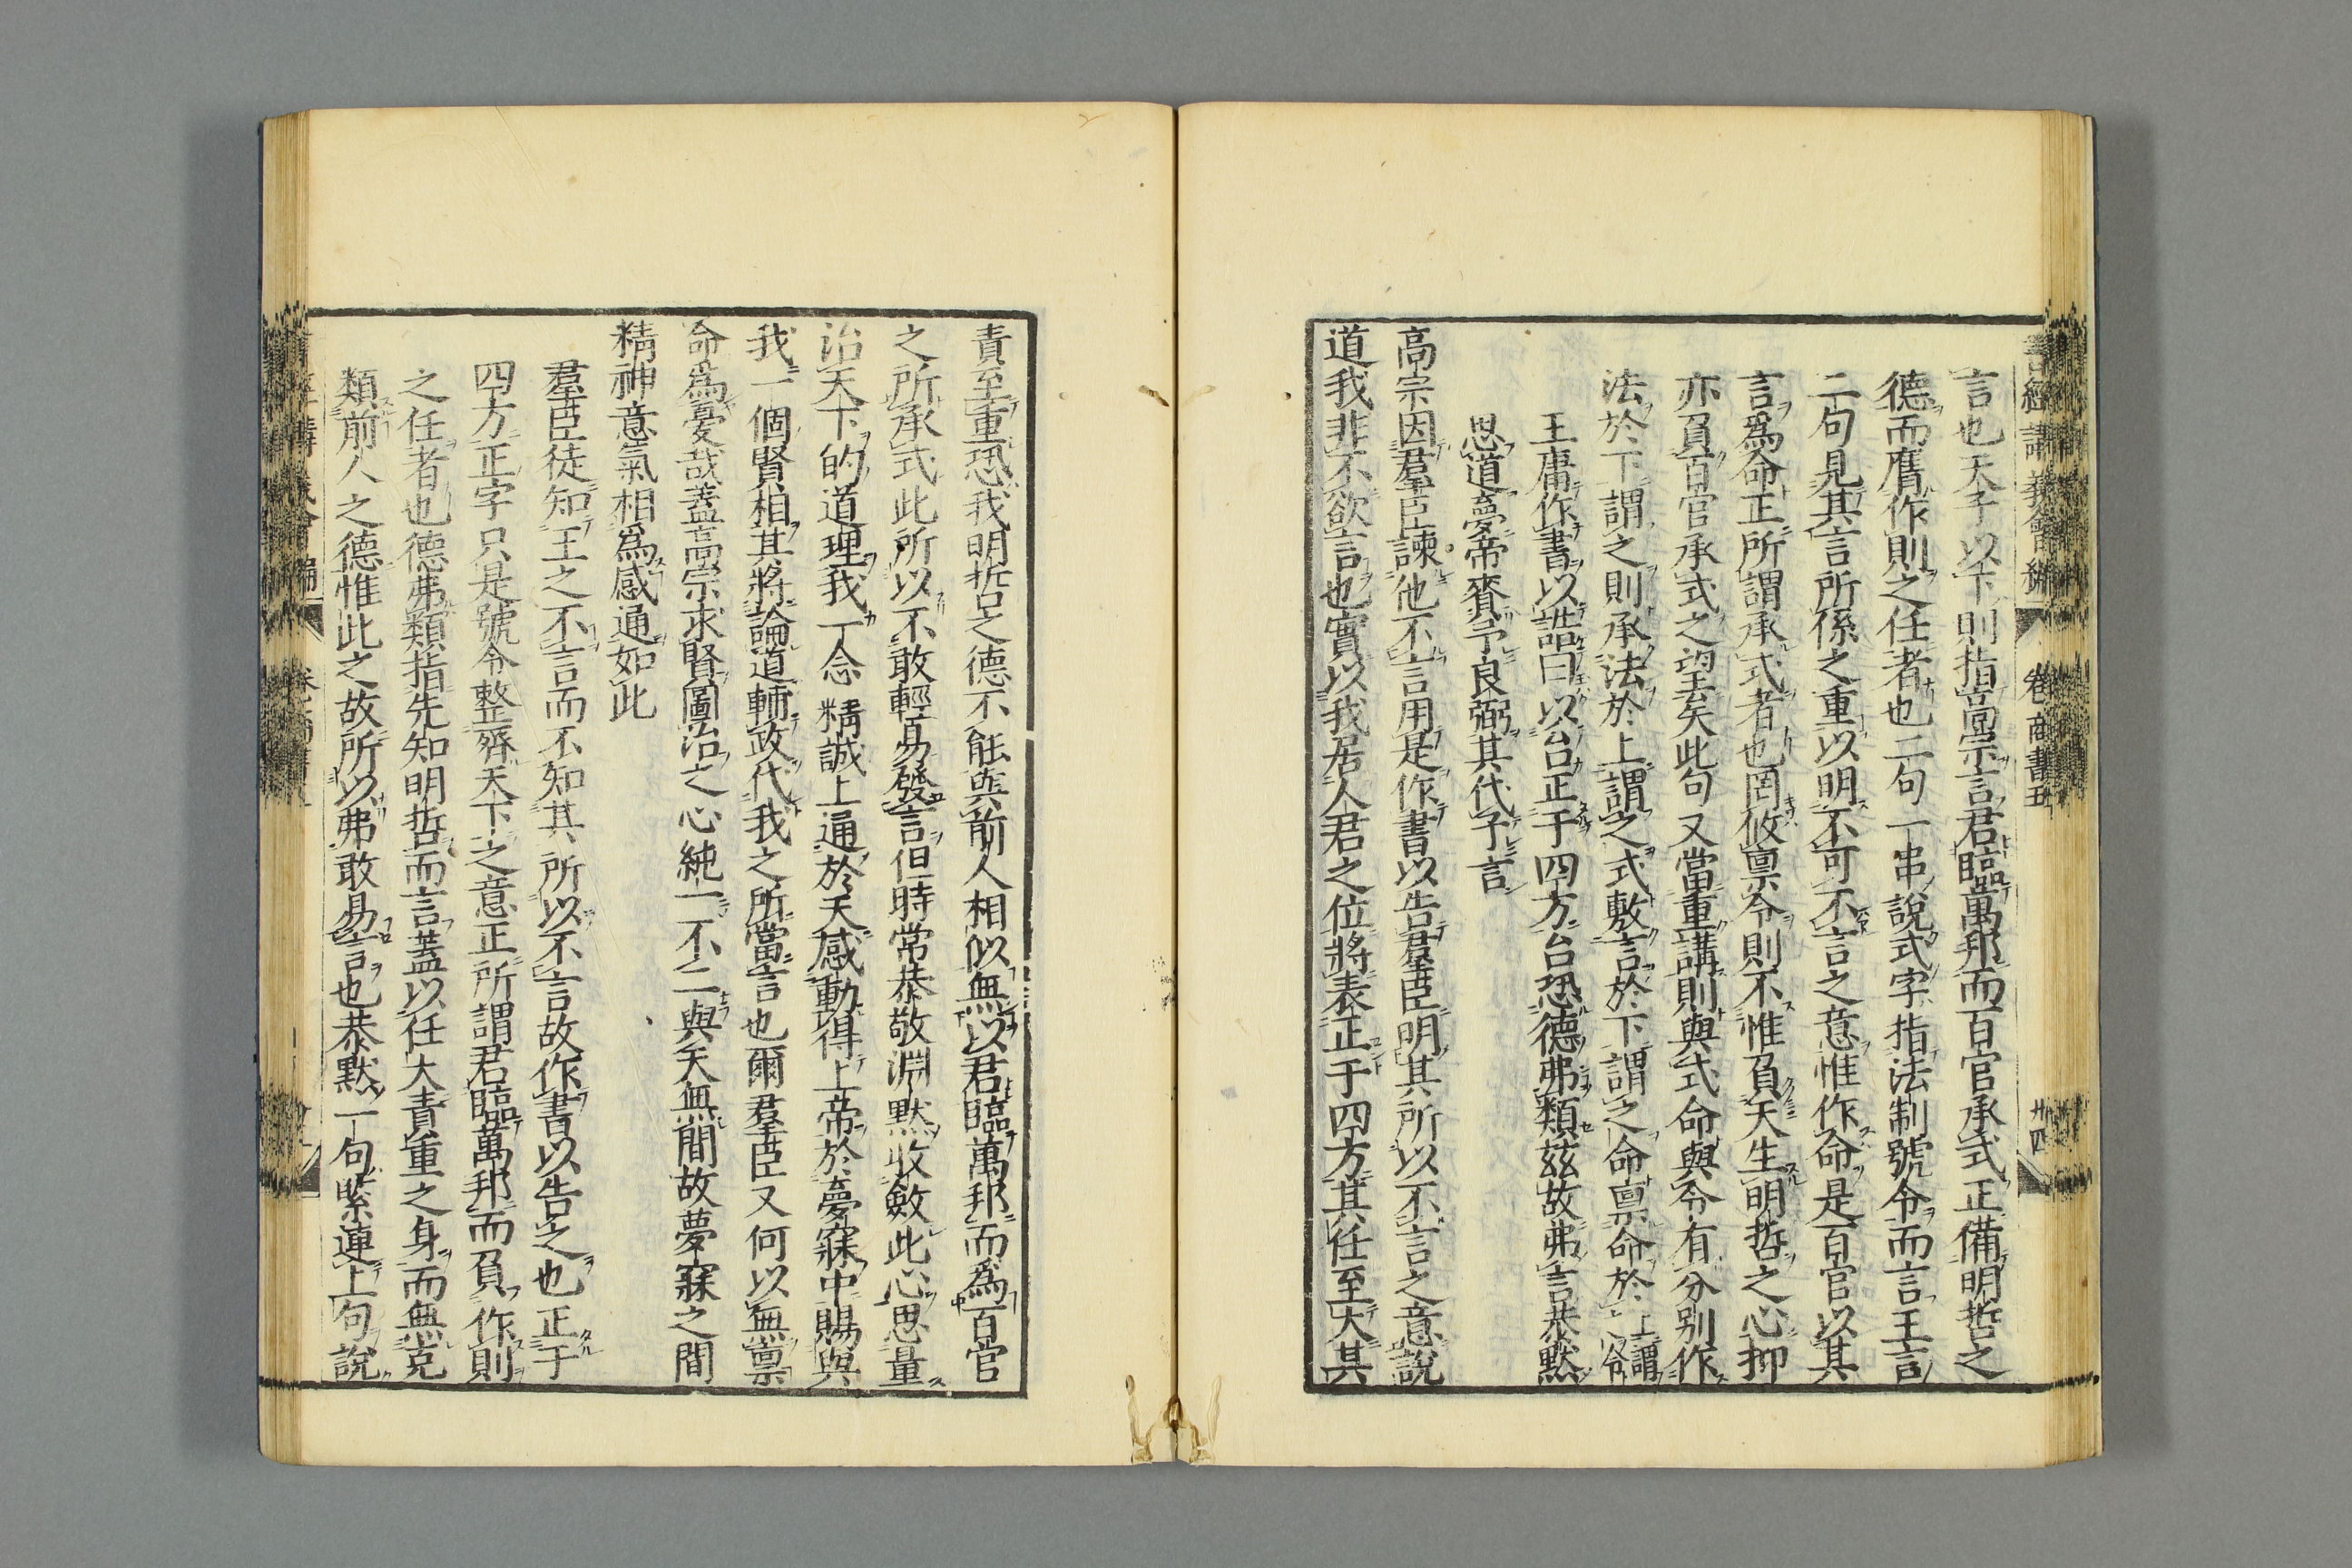 言也天子以下則指高宗言君臨萬邦而百官承式正備明哲之
德而膺作則之任者也二句一串說式字指法制號令而言王言
二句見其言所係之重以明不可不言之意惟作命是百官以其
言爲命正所謂承式者也罔攸禀令則不惟負天生明哲之心抑
亦負百官承式之望矣此句又當重講則與式命與令有分別作
法於下謂之則承法於上謂之式敷言於下謂之命禀命於上謂令
王庸作書以誥曰以台正于四方台恐德弗類茲故弗言恭默
思道夢帝賚予良弼其代予言
高宗因羣臣諫他不言用是作書以告羣臣明其所以不言之意說
道我非不欲言也實以我居人君之位將表正于四方其任至大其
書經講義會編 卷商書五 卅四
責至重恐我明哲之德不能與前人相似無以君臨萬邦而爲百官
之所承式此所以不敢輕易發言但時常恭敬淵默收斂此心思量
治天下的道理我一念精誠上通於天感動得上帝於夢寐中賜與
我一個賢相其將論道輔政代我之所當言也爾羣臣又何以無禀
命爲憂哉蓋高宗求賢圖治之心純一不二與天無間故夢寐之間
精神意氣相爲感通如此
羣臣徒知王之不言而不知其所以不言故作書以告之也正于
四方正字只是號令整齊天下之意正所謂君臨萬邦而負作則
之任者也德弗類指先知明哲而言蓋以任大責重之身而無克
類前人之德惟此之故所以弗敢易言也恭默一句緊連上句說